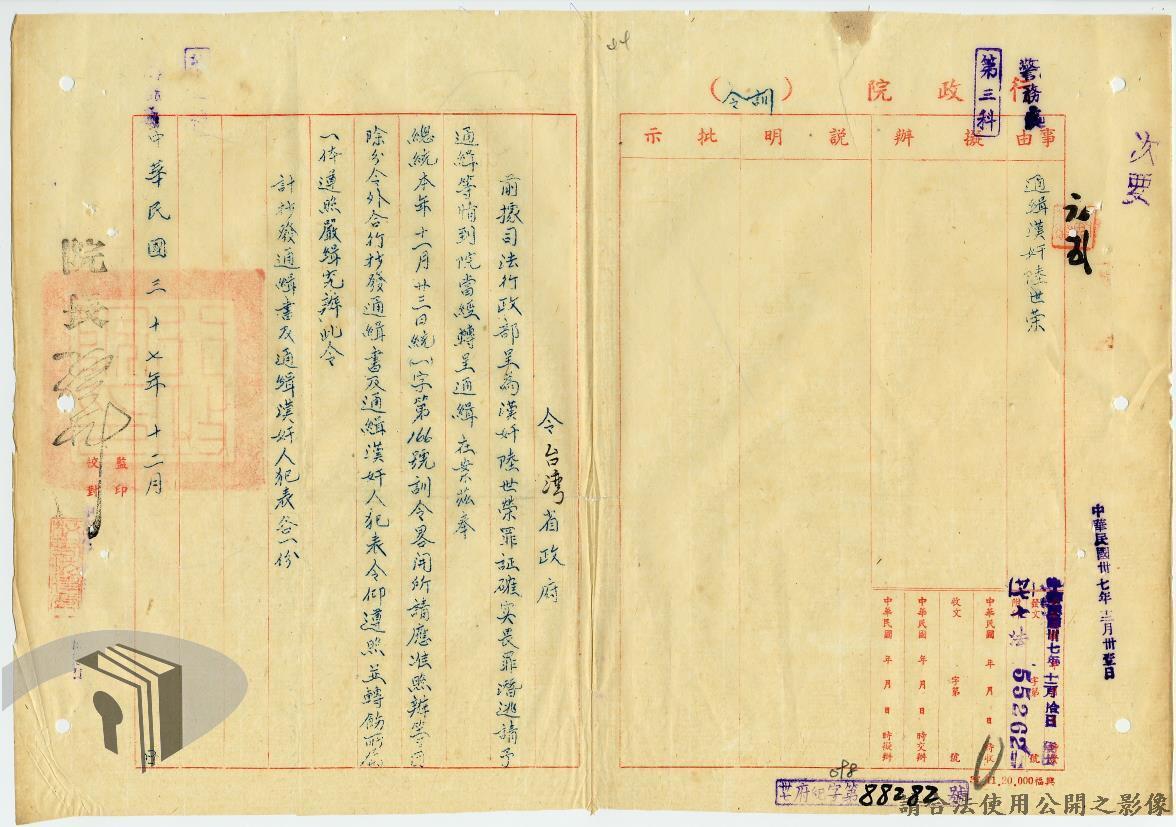 次要
中華民國卅七年十二月卅壹日
警務處
第三科
行政院（訓令）
事由
擬辦
說明
批示
通緝漢奸陸世荣
發文
附
字第
號
法
55262
中華民國 年 月 日 時收
收文 字第 號
中華民國 年 月 日 時交辦
中華民國 年 月 日 時擬辦
11,20,000 福興
698
府紀字第88282號
令台湾省政府
前據司法行政部呈為漢奸陸世榮罪証確实畏罪潛逃請予
通緝等情到院當經轉呈通緝在案茲奉
總統本年十一月廿三日統(一)字第166號訓令畧開所請應准照辦等因
除分令外合行抄發通緝書及通緝漢奸人犯表令仰遵照並轉飭所屬
一体遵照嚴緝究辦此令
計抄發通緝書及通緝漢奸人犯表各一份
中華民國三十七年十二月
日
院長
監印
校對
請合法使用公開之影像